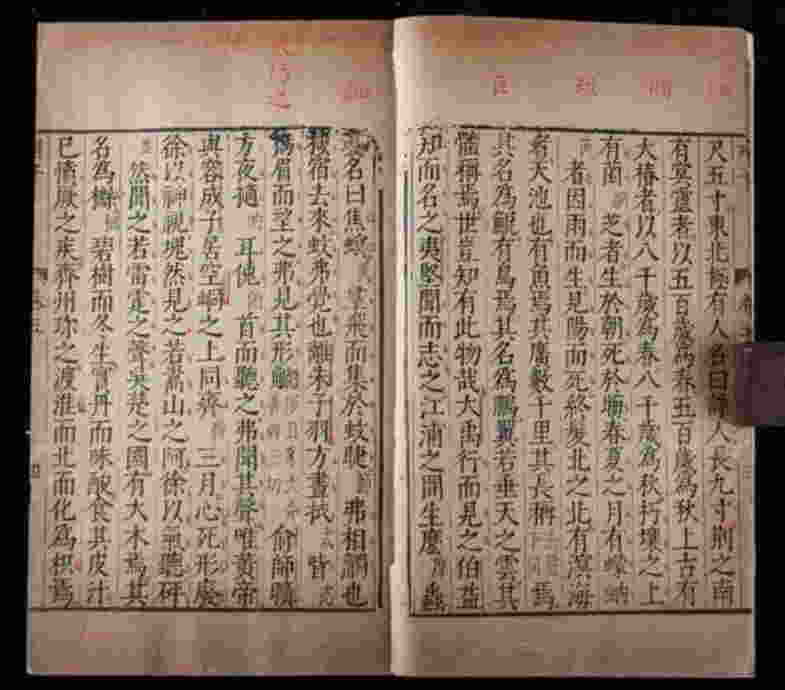 尺五寸東北極有人名曰諍人長九寸荆之南
有冥靈者以五百歲爲春五百歲爲秋上古有
大椿者以八千歲爲春八千歲爲秋朽壤之上
有菌芝者生於朝死於晦春夏之月有蠓蚋
者因雨而生見陽而死終髮北之北有溟海
者天池也有魚焉其廣數千里其長稱焉
其名爲鯤有鳥焉其名爲鵬翼若垂天之雲其
體稱焉世豈知有此物哉大禹行而見之伯益
知而名之夷堅聞而志之江浦之間生麼蟲
其名曰焦螟羣飛而集於蚊睫弗相觸也
栖宿去來蚊弗覺也離朱子羽方晝拭眥
揚眉而望之弗見其形
俞師曠
方夜擿耳俛首而聽之弗聞其聲唯黃帝
與容成子居空峒之上同齋三月心死形廢
徐以神視塊然見之若嵩山之阿徐以氣聽砰
然聞之若雷霆之聲吳楚之國有大木焉其
名爲櫾碧樹而冬生實丹而味酸食其皮汁
已憤厥之疾齊州珍之渡淮而北而化爲枳焉